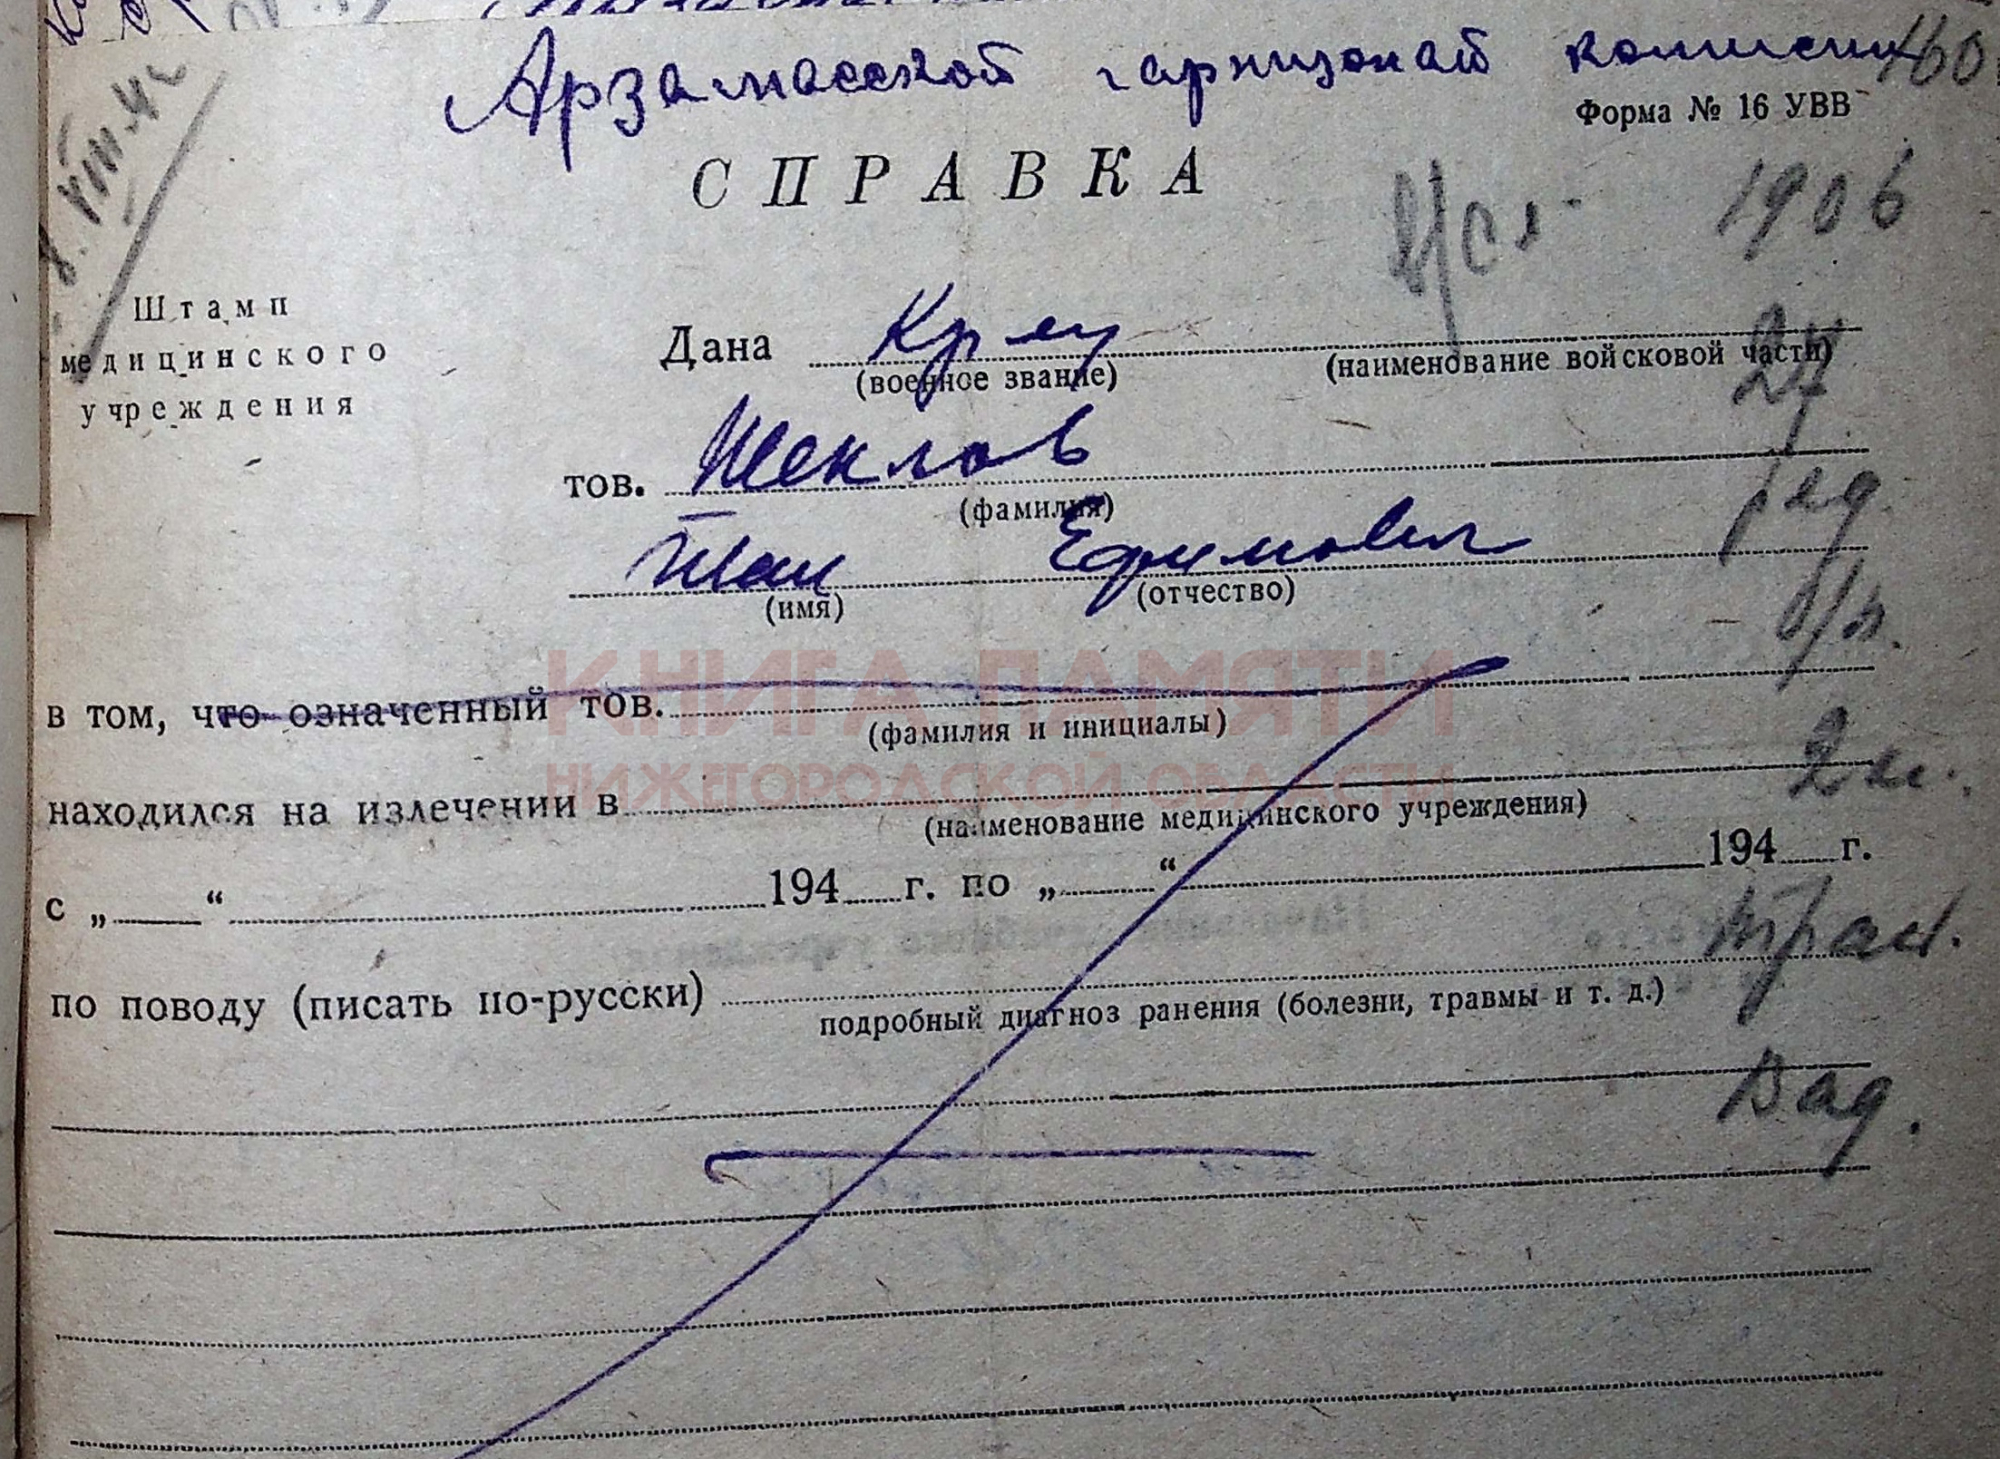 Арзамасской гарнизонай комиссии 160
Форма № 16 УВВ
VIII.42
СПРАВКА
1906
Штамп
медицинского
учреждения
Дана
(военное звание) (наименование войсковой части)
24
тов. Шеклов
(фамилия)
ряд.
Ефимович
(имя) (отчество)
б/п.
КНИГА ПАМЯТИ
в том, что означенный тов.
(фамилия и инициалы)
НИЖЕГОРОДСКОЙ ОБЛАСТИ
находился на излечении в
2 м.
(наименование медицинского учреждения)
с „ “ 194 г. по „ “ 194 г.
по поводу (писать по-русски)
подробный диагноз ранения (болезни, травмы и т. д.)
Вад.